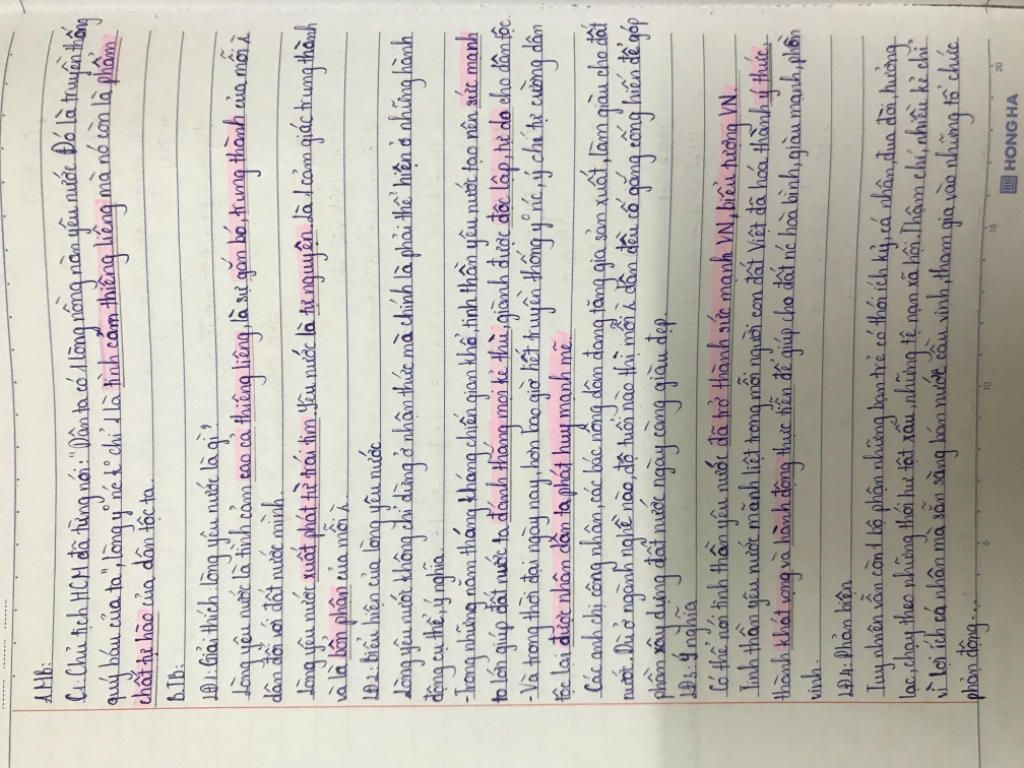 A. MB:
C1: Chủ tịch HCM đã từng nói: "Dân ta có 1 lòng nồng nàn yêu nước. Đó là truyền thống
quý báu của ta", lòng y² né t° chỉ là tình cảm thiêng liêng mà nó còn là phẩm
chất tự hào của dân tộc ta.
B. TB:
LĐ1: Giải thích lòng yêu nước là gì?
Lòng yêu nước là tình cảm cao cả thiêng liêng, là sự gắn bó, trung thành của mỗi
dân đối với đất nước mình.
Lòng yêu nước xuất phát từ trái tim. Yêu nước là tự nguyện. Là 1 cảm giác trung thành
và là bổn phận của mỗi
LĐ2: Biểu hiện của lòng yêu nước
Lòng yêu nước không chỉ dừng ở nhân thức mà chính là phải thể hiện ở những hành
động cụ thể, ý nghĩa.
- Trong những năm tháng kháng chiến gian khổ, tinh thần yêu nước tạo nên sức mạnh
to lớn giúp đất nước ta đánh thắng mọi kẻ thù, giành được độc lập, tự do cho dân tộc.
- Và trong thời đại ngày nay, hơn bao giờ hết truyền thống y² né, ý chí tự cường dân
tộc lại được nhân dân ta phát huy mạnh mẽ.
Các anh chị công nhân, các bác nông dân đang tăng gia sản xuất, làm giàu cho đất
nước. Dù ở ngành nghề nào, độ tuổi nào thì mỗi dân đều cố gắng cống hiến để góp
phần xây dựng đất nước ngày càng giàu đẹp.
LĐ3: Ý nghĩa
Có thể nói tinh thần yêu nước đã trở thành sức mạnh VN, biểu tượng VN.
Tinh thần yêu nước mãnh liệt trong mỗi người con đất Việt đã hoá thành ý thức,
thành khát vọng và hành động thực tiễn để giúp cho đất né hoà bình, giàu mạnh, phồn
vinh.
LĐ4: Phản biện
Tuy nhiên vẫn còn 1 bộ phận những bạn trẻ có thói ích kỷ, cá nhân, đua đòi, hưởng
lạc, chạy theo những thói hư tật xấu, những tệ nạn xã hội. Thậm chí, nhiều kẻ chỉ
vì lợi ích cá nhân mà sẵn sàng bán nước cầu vinh, tham gia vào những tổ chức
phản động...
HONG HA
5
10
15
20